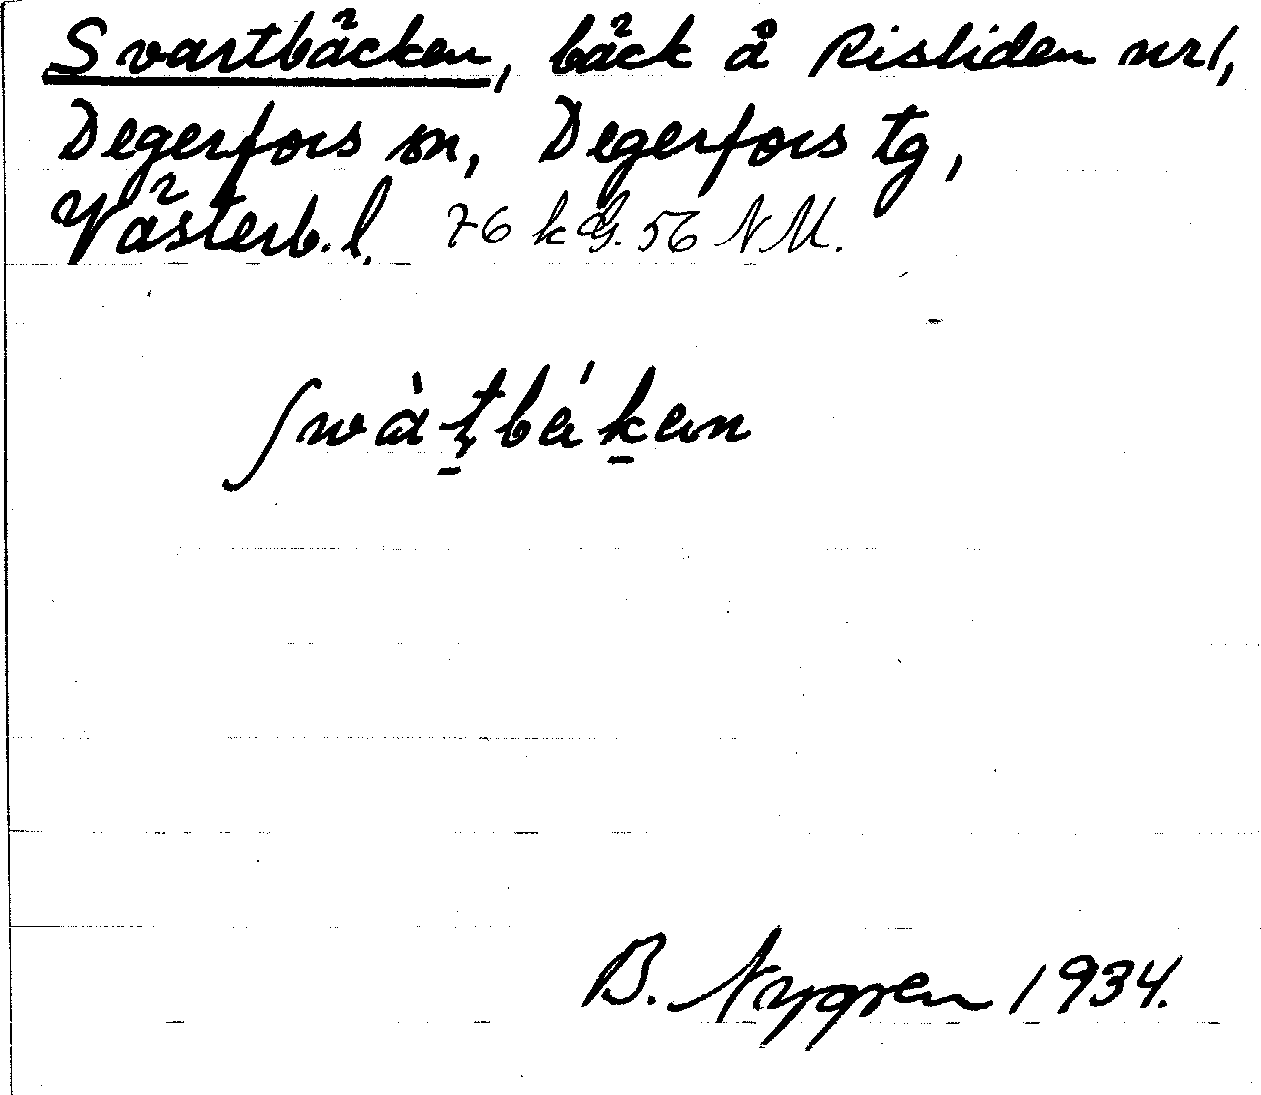 Svartbäcken, bäck å Risliden nr 1,
Degerfors sn, Degerfors tg,
Västerb. l. 76 k G. 56 N M.
B. Nygren 1934.